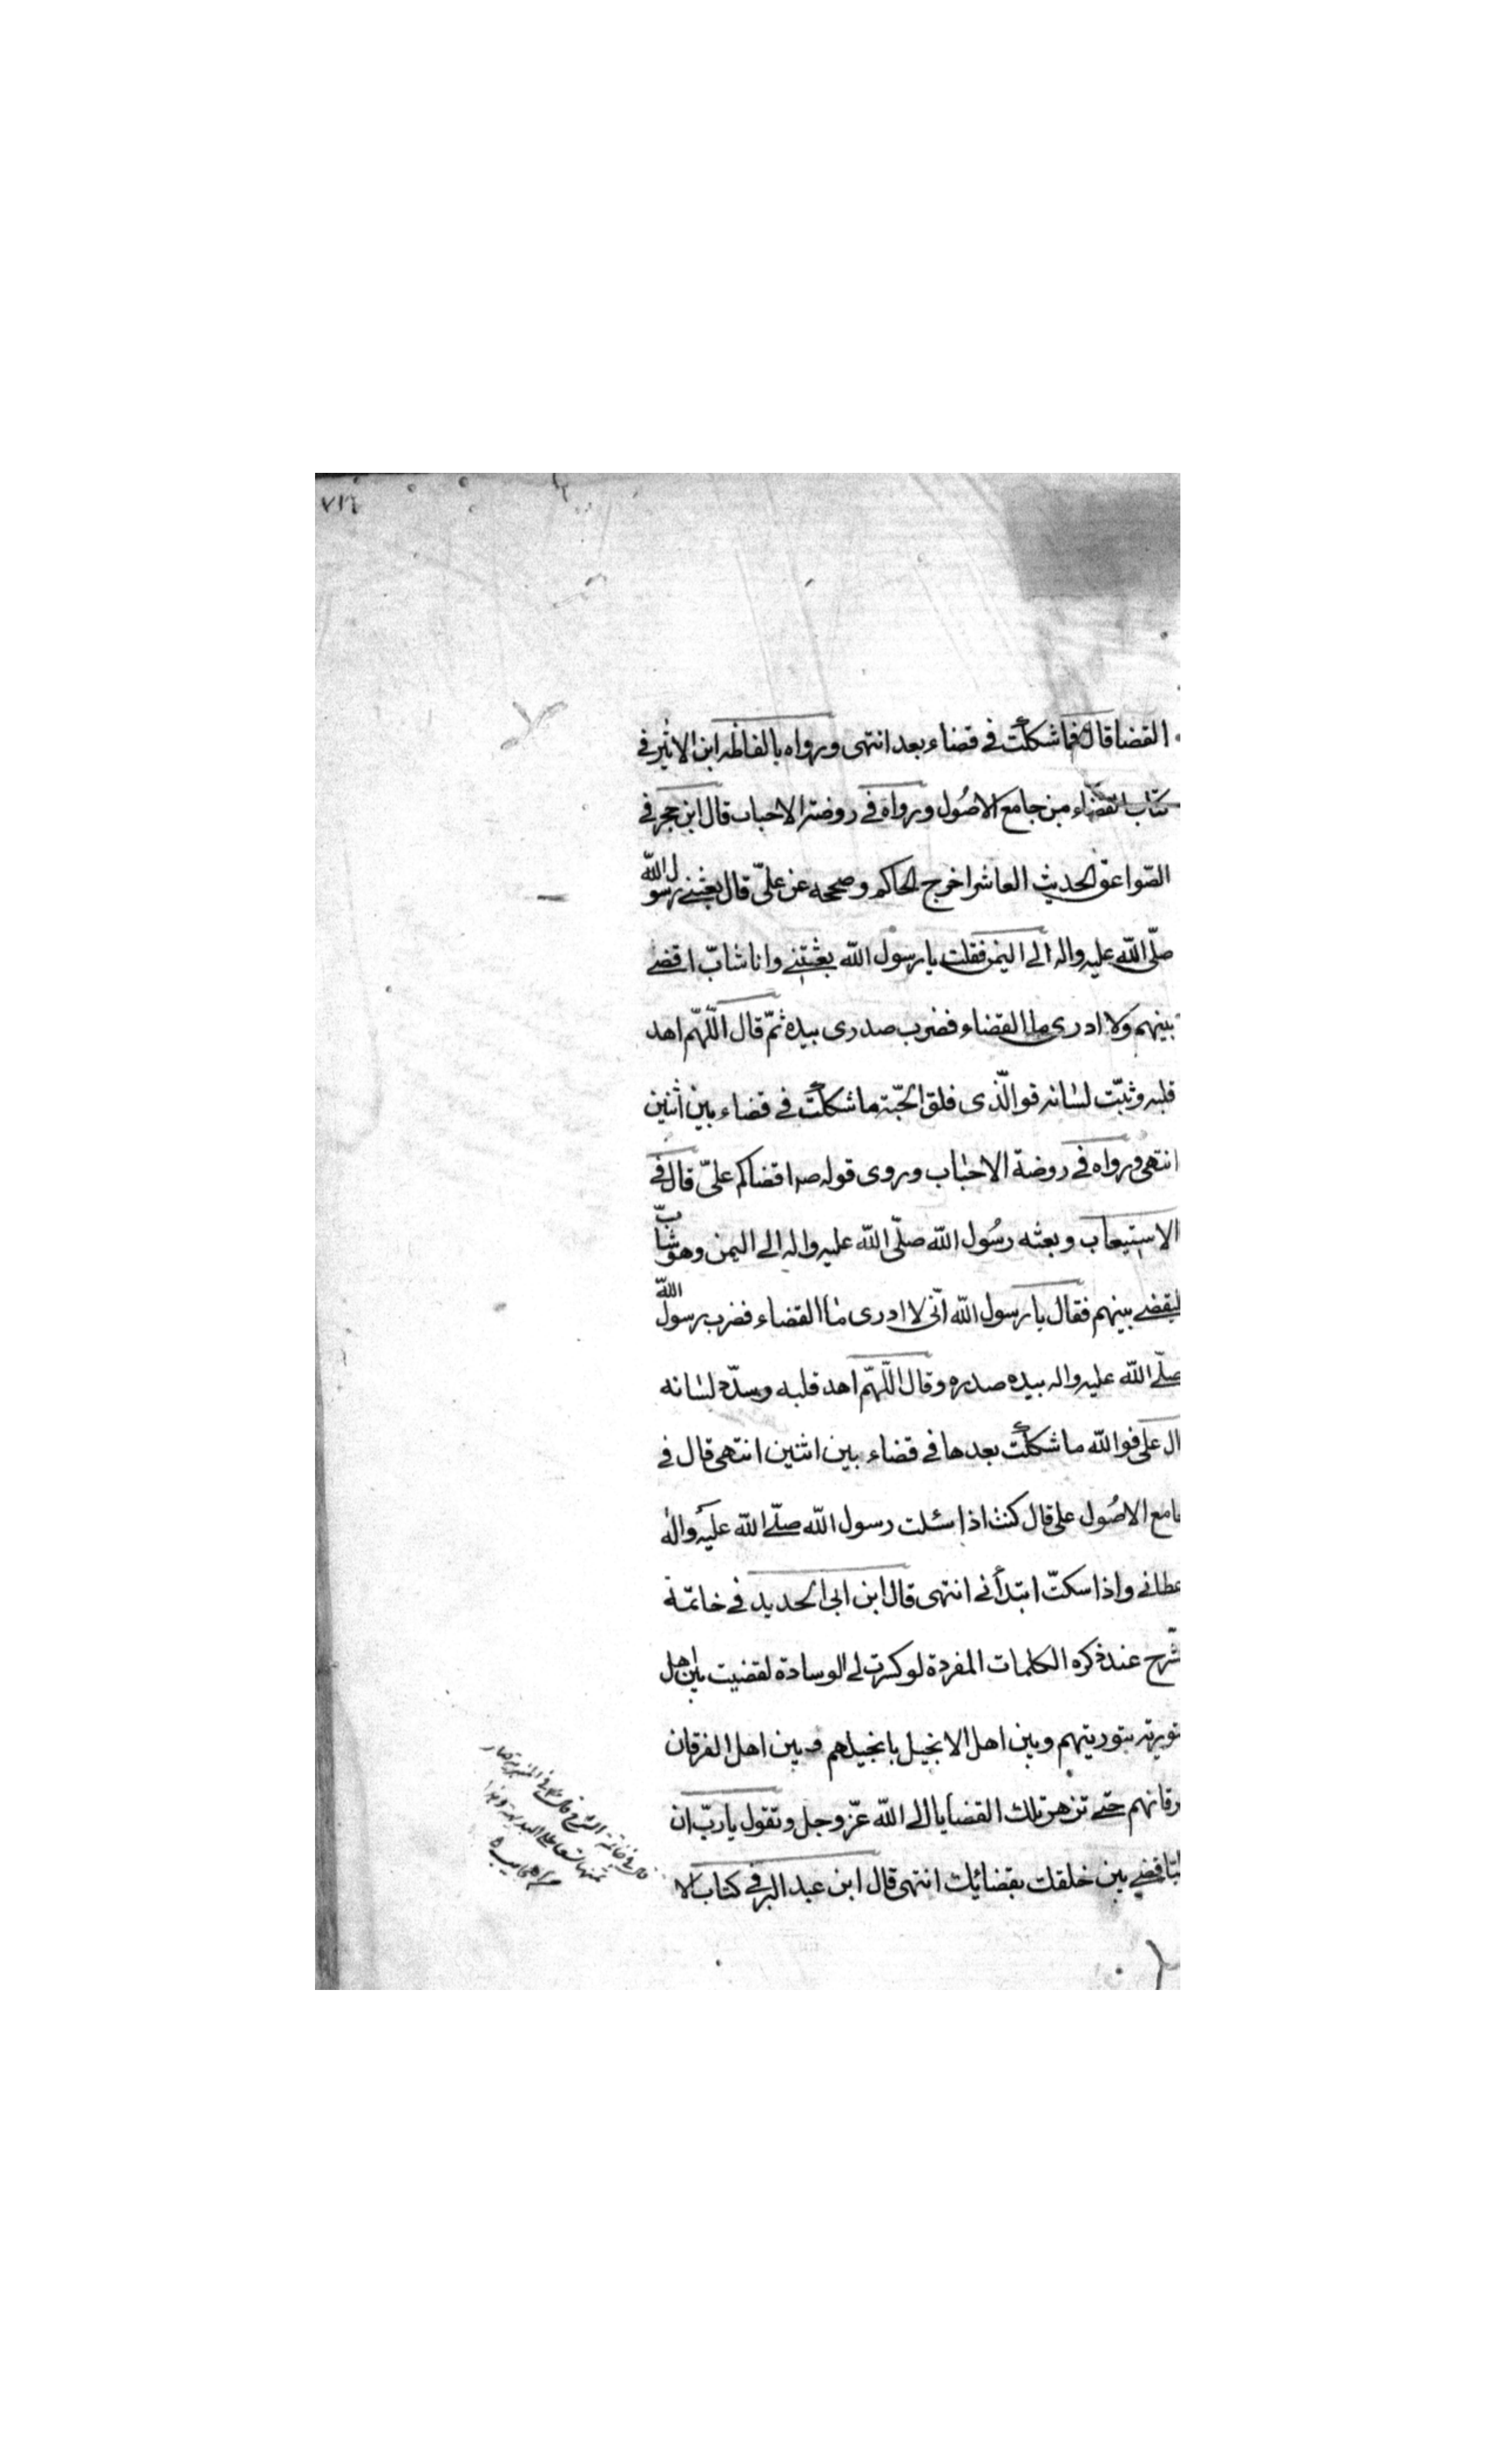 ٧١٤
القضا قال فما شككت في قضاء بعد انتهى ورواه بالفاظه ابن الاثير في
كتاب القضاء من جامع الاصُول ورواه في روضة الاحباب قال ابن حجر في
الصّواعق الحديث العاشر اخرج الحاكم وصححه عن علىّ قال بعثنے رسول اللّه
صلّى اللّه عليه واله الے اليمن فقلت يا رسول اللّه بعثتنے وانا شابّ اقضے
بينهم ولا ادرى ما القضاء فضرب صدرى بيده ثمّ قال اللّهمّ اهد
قلبه وثبّت لسانه فو الّذى فلق الحبّة ما شككت في قضاء بين اثنين
انتهى ورواه في روضة الاحباب وروى قوله ص اقضاكم علىّ قال في
الاستيعاب وبعثه رسُول اللّه صلّى اللّه عليه واله الے اليمن وهو شابّ
ليقضے بينهم فقال يا رسول اللّه انّى لا ادرى ما القضاء فضرب رسول اللّه
صلّے اللّه عليه واله بيده صدره وقال اللّهمّ اهد قلبه وسدّد لسانه
ال على فو اللّه ما شككت بعدها في قضاء بين اثنين انتهى قال في
امع الاصُول على قال كنت اذا سئلت رسول اللّه صلّے اللّه عليه واله
عطانے واذا سكتّ ابتدأنے انتهى قال ابن ابى الحديد في خاتمة
شّرح عند ذكره الكلمات المفردة لو كسرت لے الوسادة لقضيت بين اهل
توريته بتوريتهم وبين اهل الانجيل بانجيلهم وبين اهل الفرقان
رقانهم حتّے تزهر تلك القضايا الے اللّه عزّ وجل وتقول يا ربّ ان
ليّا قضے بين خلقك بقضائك انتهى قال ابن عبد البر في كتاب الا